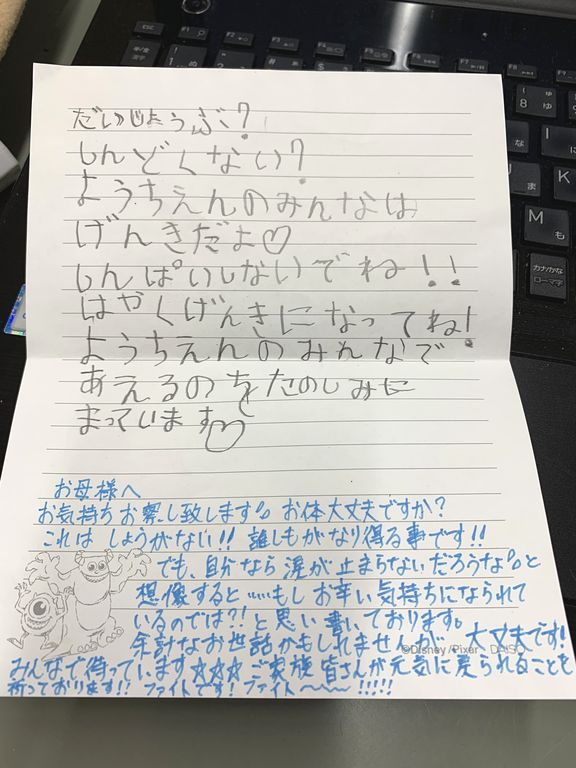 だいじょうぶ?
しんどくない?
ようちえんのみんなは
げんきだよ♡
しんぱいしないでね!!
はやくげんきになってね!
ようちえんのみんなで
あえるのをたのしみに
まっています♡
お母様へ
お気持ちお察し致します。 お体大丈夫ですか?
これは しょうがない!! 誰しもがなり得る事です!!
でも、自分なら涙が止まらないだろうな。と
想像すると……もしお辛い気持ちになられて
いるのでは?!と思い書いております。
余計なお世話かもしれませんが 大丈夫です!
©Disney/Pixar DAISO
みんなで待っています☆☆☆ ご家族皆さんが元気に戻られることを
祈っております!! ファイトです!ファイト〜〜!!!!!
F1
F2
F3
F4
F5
F6
F7
F8
半/全
漢字
8
ゆ
K
M
も
カタカナ
ローマ字